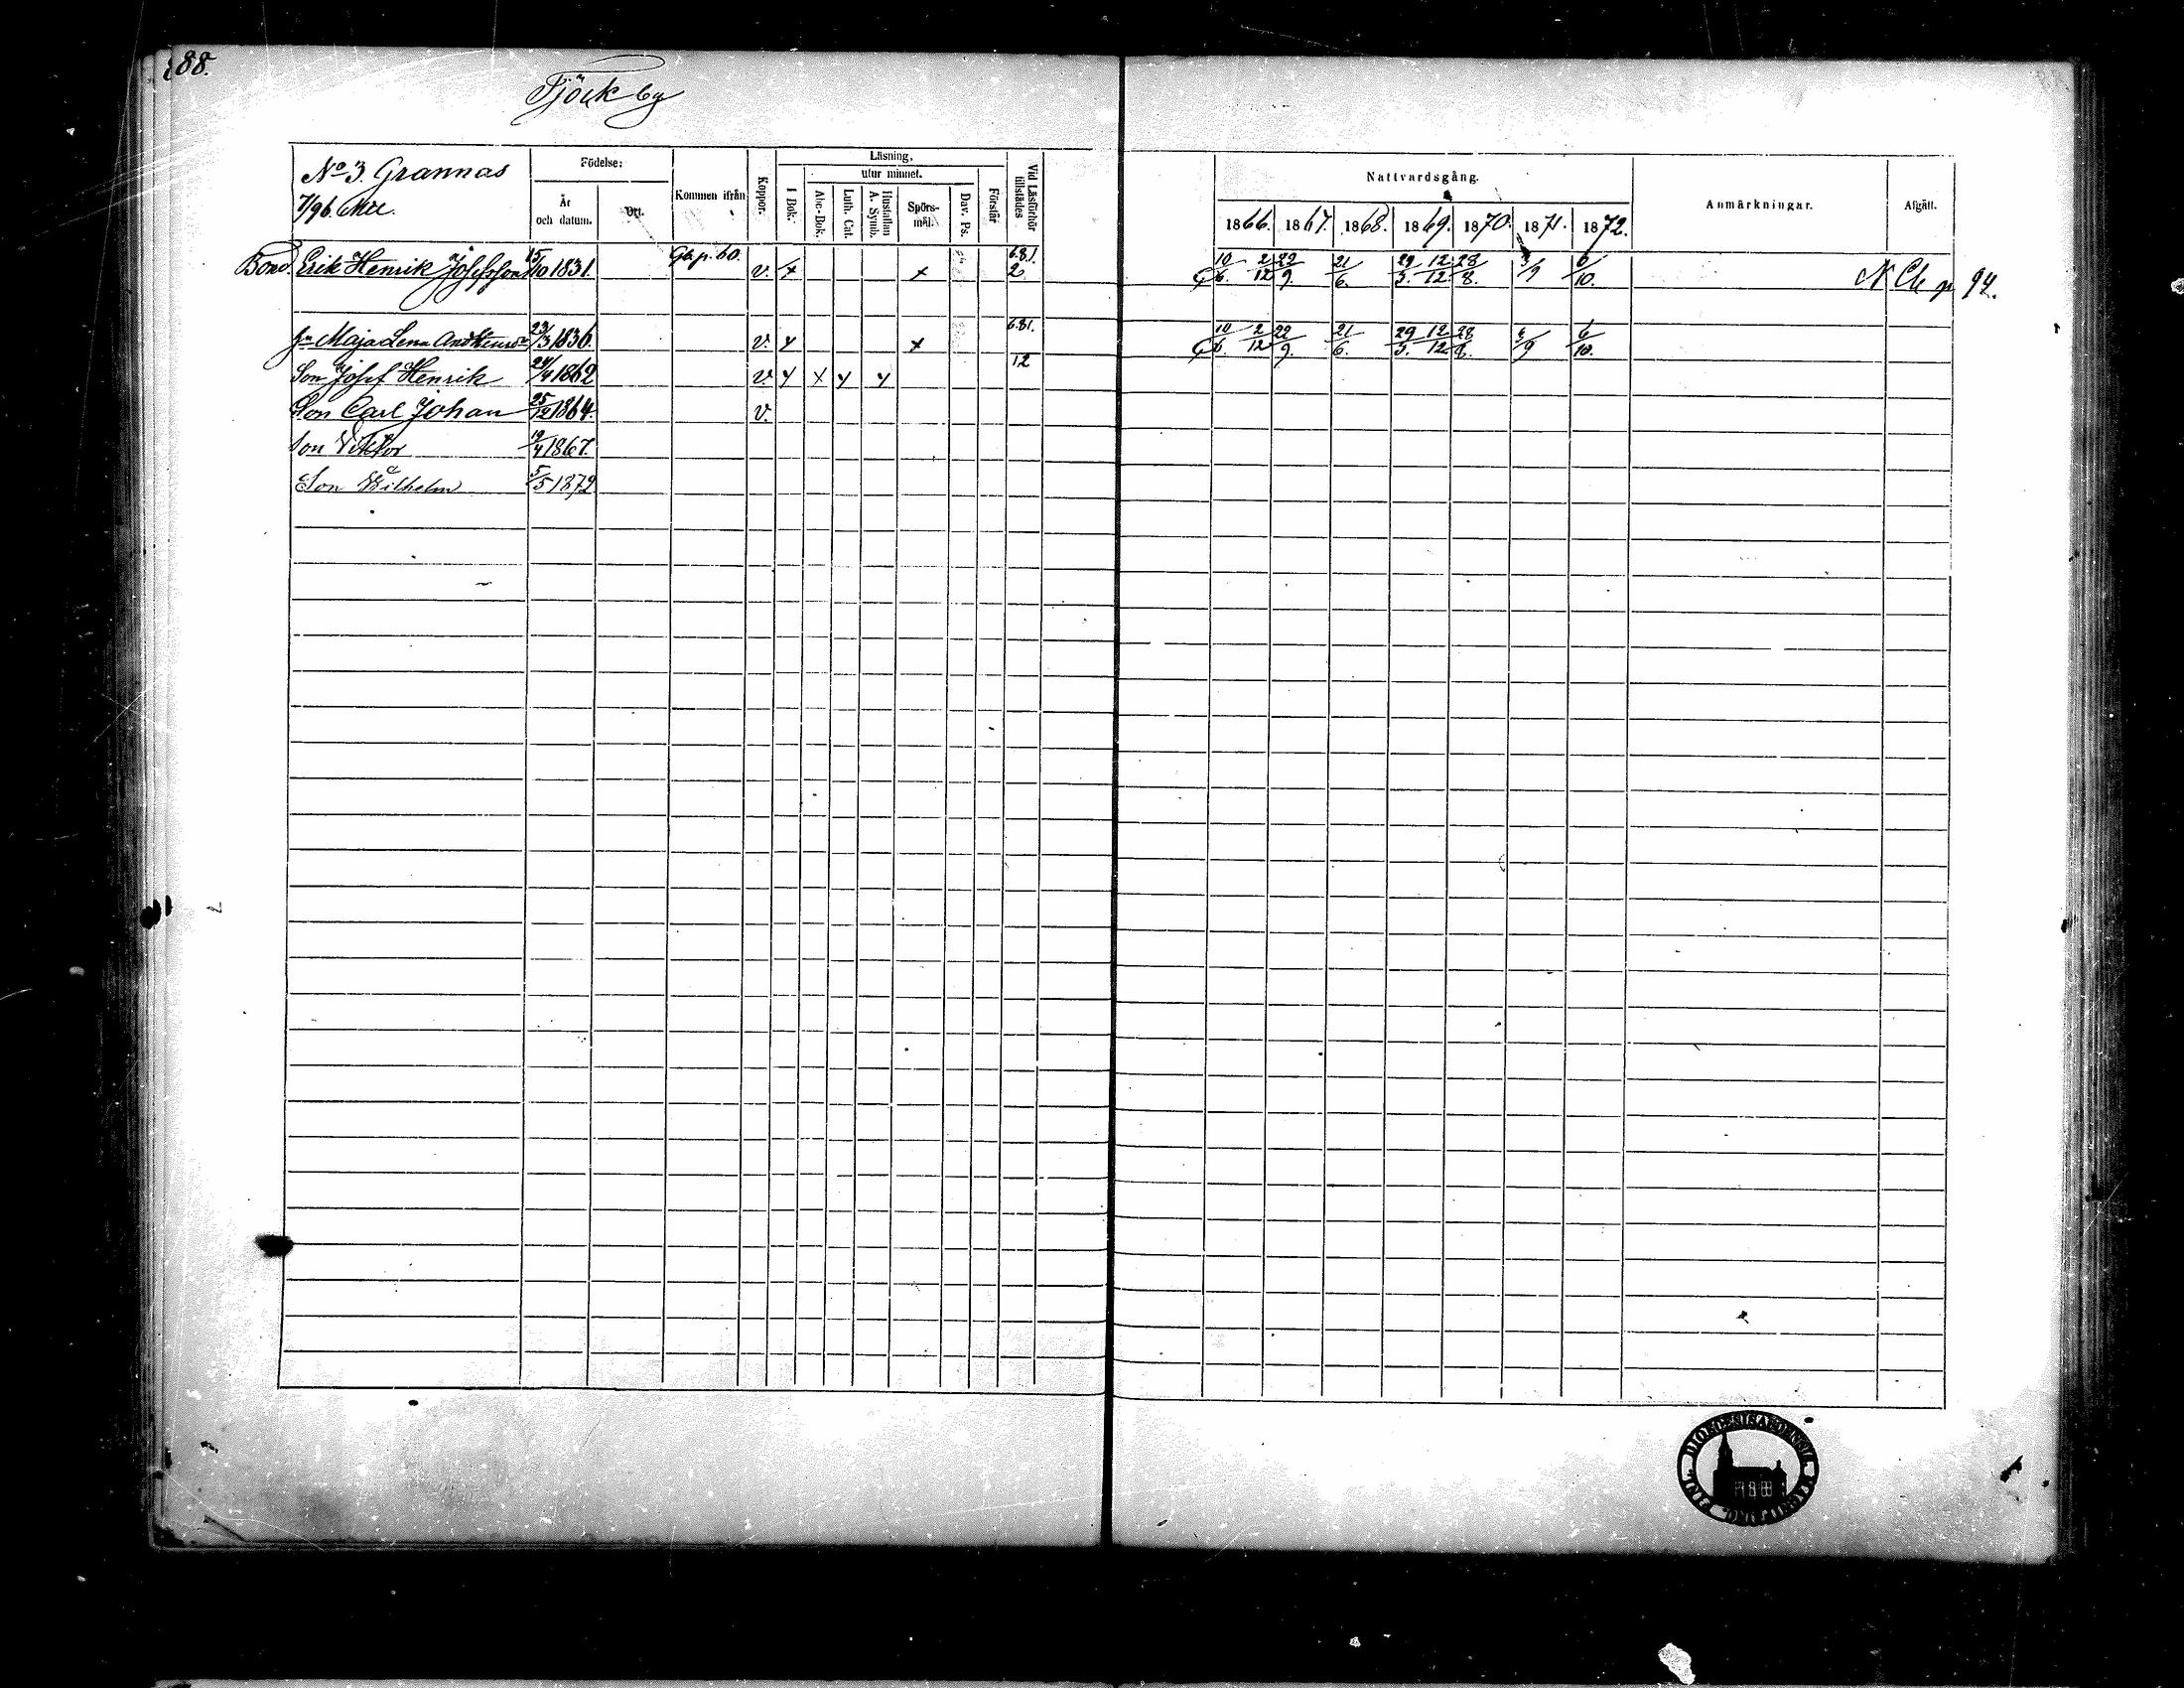 88.
Tjöck by
No 3. Grannas
7/96 Mtl.
Födelse:
År och datum.
Ort.
Kommen ifrån
Koppor.
Läsning,
I Bok.
utur minnet.
Abc-Bok.
Luth. Cat.
Hustaflan A. Symb.
Spörsmål.
Dav. Ps.
Förstår
Vid Läsförhör tillstädes
Nattvardsgång.
1866. 1867. 1868. 1869. 1870. 1871. 1872.
Anmärkningar.
Afgått.
Bond. Erik Henrik Josefsson 15/10 1831. Gb. p. 60. v. x x 6.8.1. 2. 10/6. 2/12 22/9. 21/6. 29/3. 12/12. 28/8. 3/9 6/10. N Cb p 94.
Maja Lena 23/3 1836. v. x x 6.81. 10/6. 2/12 22/9. 21/6. 29/3. 12/12 28/8. 3/9 6/10.
Son Josef Henrik 24/4 1862 v. x x x x 12
Son Carl Johan 25/12 1864. v.
Son Viktor 19/4 1867.
Son Wilhelm 5/5 1872